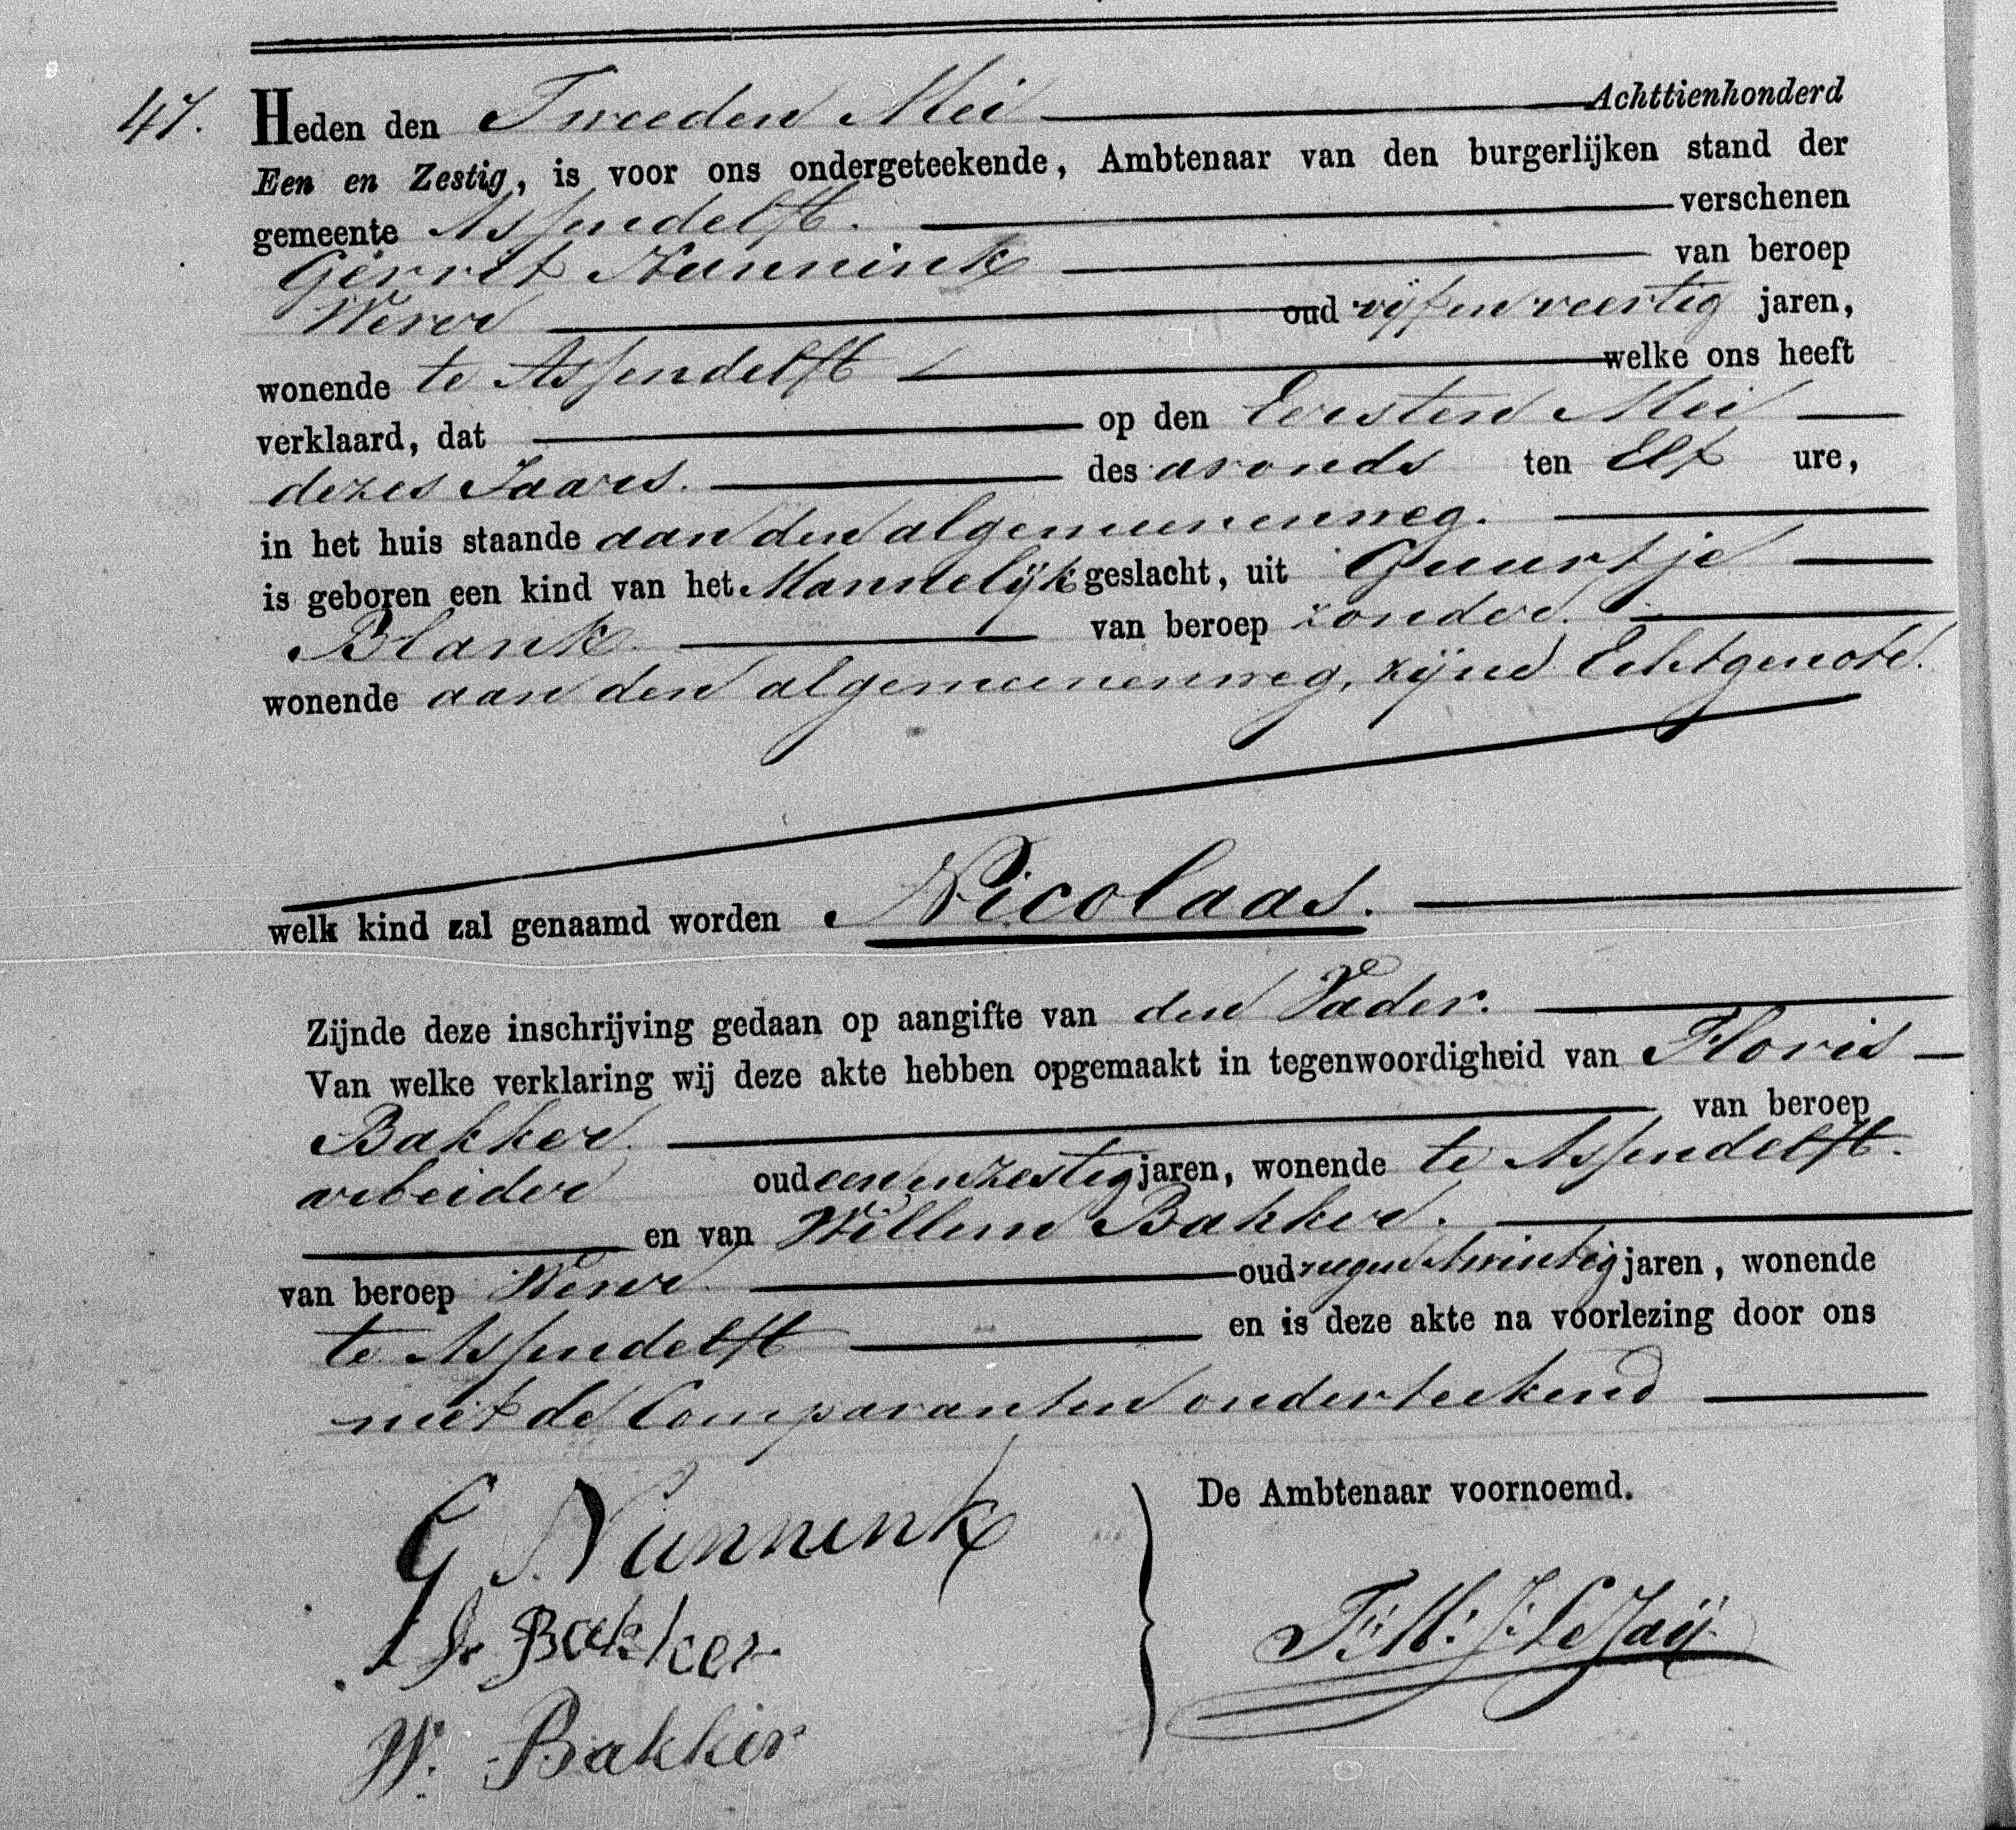 47. Heden den Tweeden Mei Achttienhonderd
Een en Zestig, is voor ons ondergeteekende, Ambtenaar van den burgerlijken stand der
gemeente Assendelft. verschenen
Gerrit Nunnink van beroep
Wever oud vijfenveertig jaren,
wonende te Assendelft welke ons heeft
verklaard, dat op den Eersten Mei
dezes Jaars. des avonds ten Elf ure,
in het huis staande aan den algemeenenweg.
is geboren een kind van het Mannelijk geslacht, uit Guurtje
Blank van beroep zonder.
wonende aan den algemeenenweg, zijne Echtgenote.
welk kind zal genaamd worden Nicolaas.
Zijnde deze inschrijving gedaan op aangifte van den Vader.
Van welke verklaring wij deze akte hebben opgemaakt in tegenwoordigheid van Floris
Bakker van beroep
arbeider oud eenenzestig jaren, wonende te Assendelft.
en van Willem Bakker.
van beroep Wever oud negenentwintig jaren, wonende
te Assendelft en is deze akte na voorlezing door ons
met de Comparanten onderteekend
De Ambtenaar voornoemd.
G Nunnink
Bakker
W. Bakker